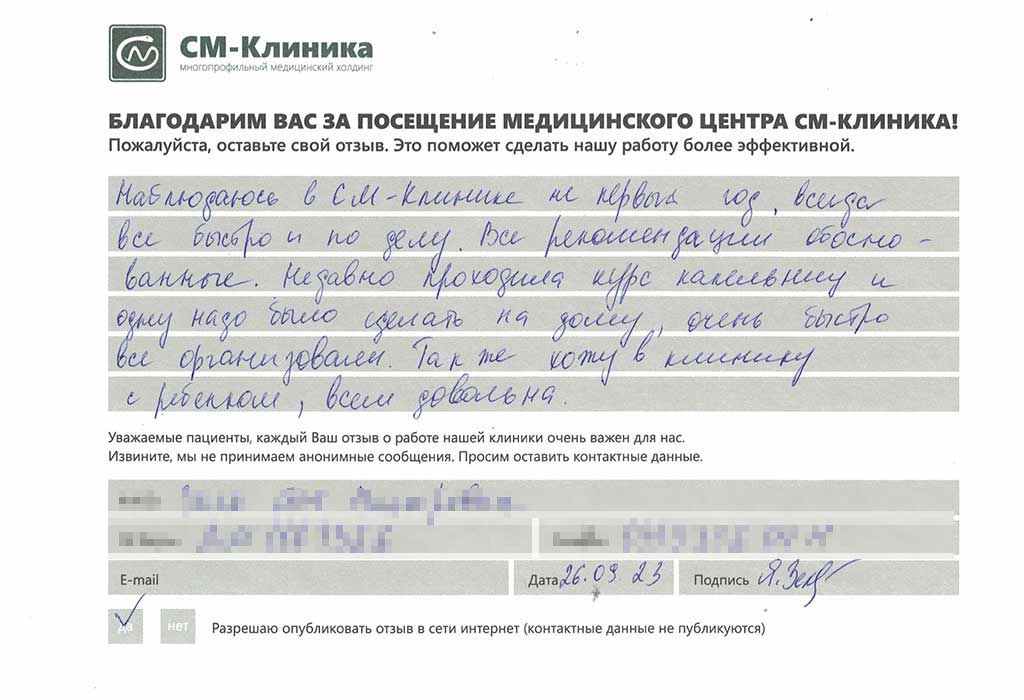 СМ-Клиника
многопрофильный медицинский холдинг
БЛАГОДАРИМ ВАС ЗА ПОСЕЩЕНИЕ МЕДИЦИНСКОГО ЦЕНТРА СМ-КЛИНИКА!
Пожалуйста, оставьте свой отзыв. Это поможет сделать нашу работу более эффективной.
Наблюдаюсь в СМ-Клинике не первый год, всегда
все быстро и по делу. Все рекомендации обосно-
ванные. Недавно проходила курс капельниц и
одну надо было сделать на дому, очень быстро
все организовали. Так же хожу в клинику
с ребенком, всем довольна.
Уважаемые пациенты, каждый Ваш отзыв о работе нашей клиники очень важен для нас.
Извините, мы не принимаем анонимные сообщения. Просим оставить контактные данные.
E-mail Дата 26.09.23 Подпись
да нет Разрешаю опубликовать отзыв в сети интернет (контактные данные не публикуются)